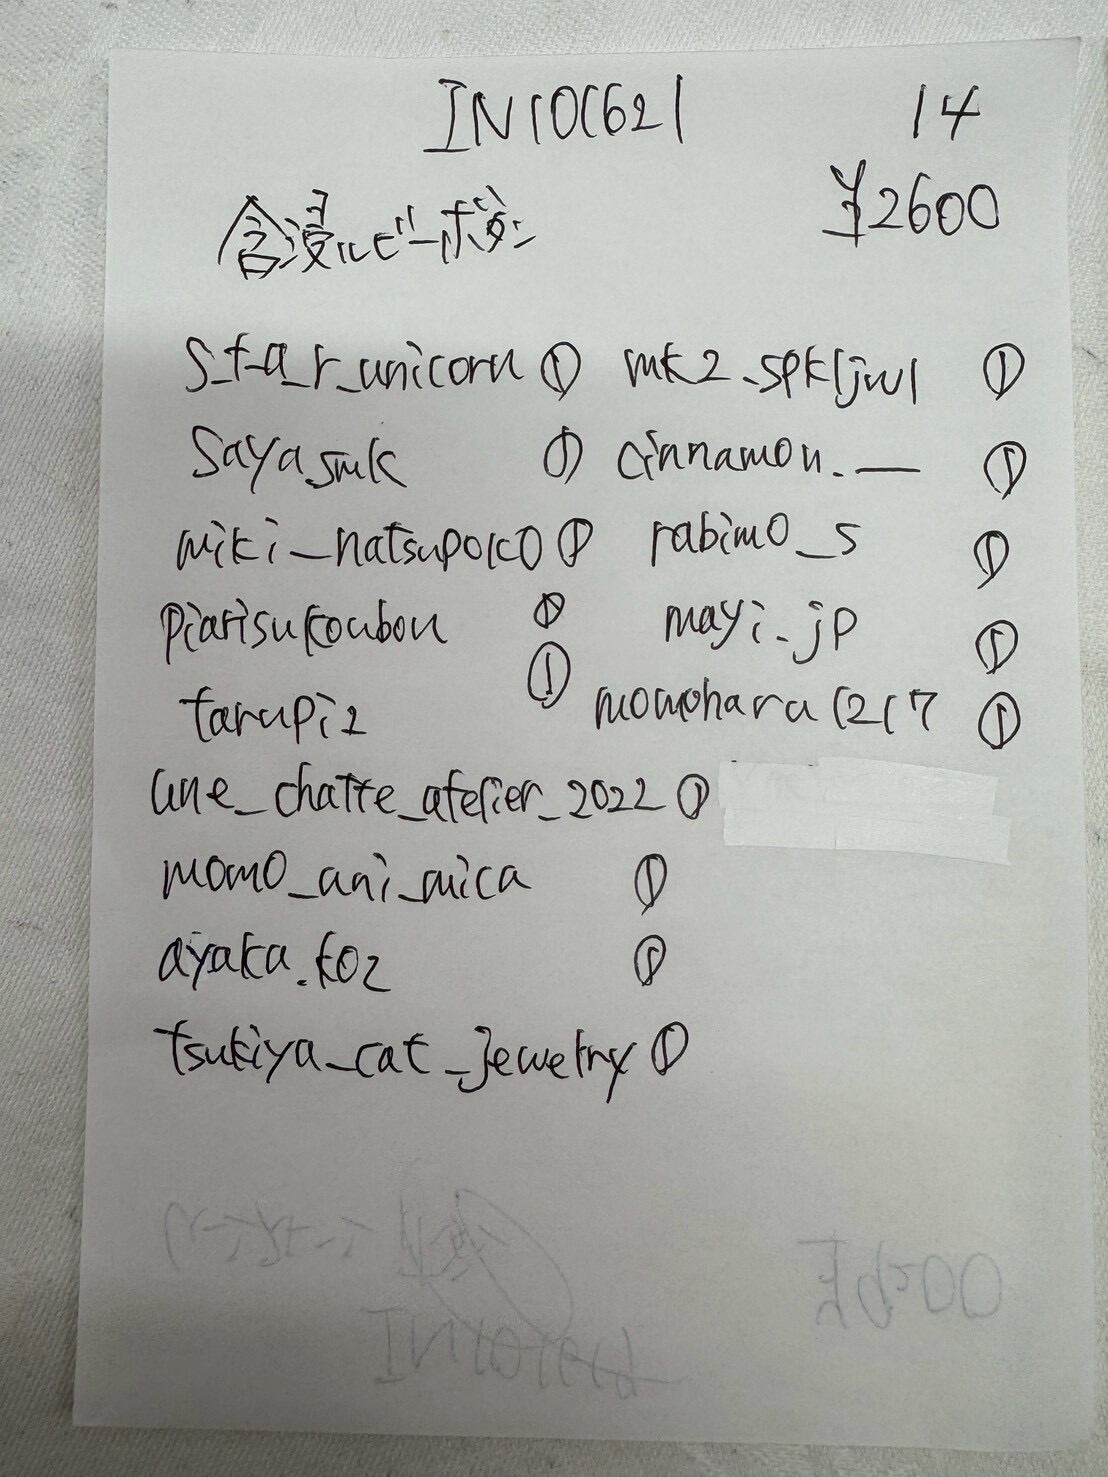 IN101621 14
¥2600
含浸ルビーボタン
s_t_a_r_unicorn ① mk2_spkljwl ①
saya.smk ① cinnamon.__ ①
miki_natsupoko ① rabimo_s ①
piarisukoubou ① mayi_jp ①
tarupi2 ① momohara1217 ①
une_chatte_atelier_2022 ①
momo_ani_mica ①
ayaka.koz ①
tsukiya_cat_jewelry ①